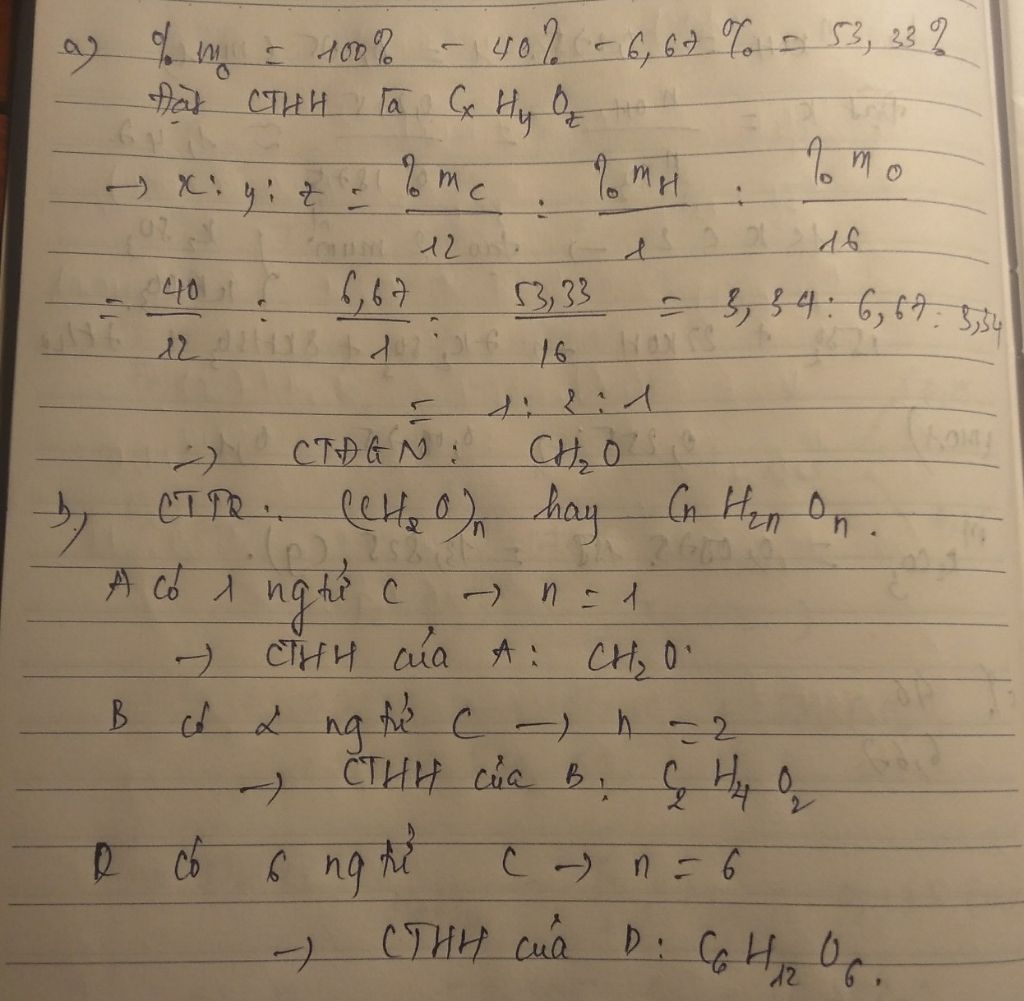 a) %mO = 100% - 40% - 6,67% = 53,33%
Đặt CTHH là CxHyOz
→ x : y : z = %mC/12 : %mH/1 : %mO/16
= 40/12 : 6,67/1 : 53,33/16 = 3,34 : 6,67 : 3,34
= 1 : 2 : 1
→ CTĐGN : CH₂O
b, CTTQ : (CH₂O)n hay CnH₂nOn .
A có 1 ngtử C → n = 1
→ CTHH của A : CH₂O
B có 2 ngtử C → n = 2
→ CTHH của B : C₂H₄O₂
D có 6 ngtử C → n = 6
→ CTHH của D : C₆H₁₂O₆ .